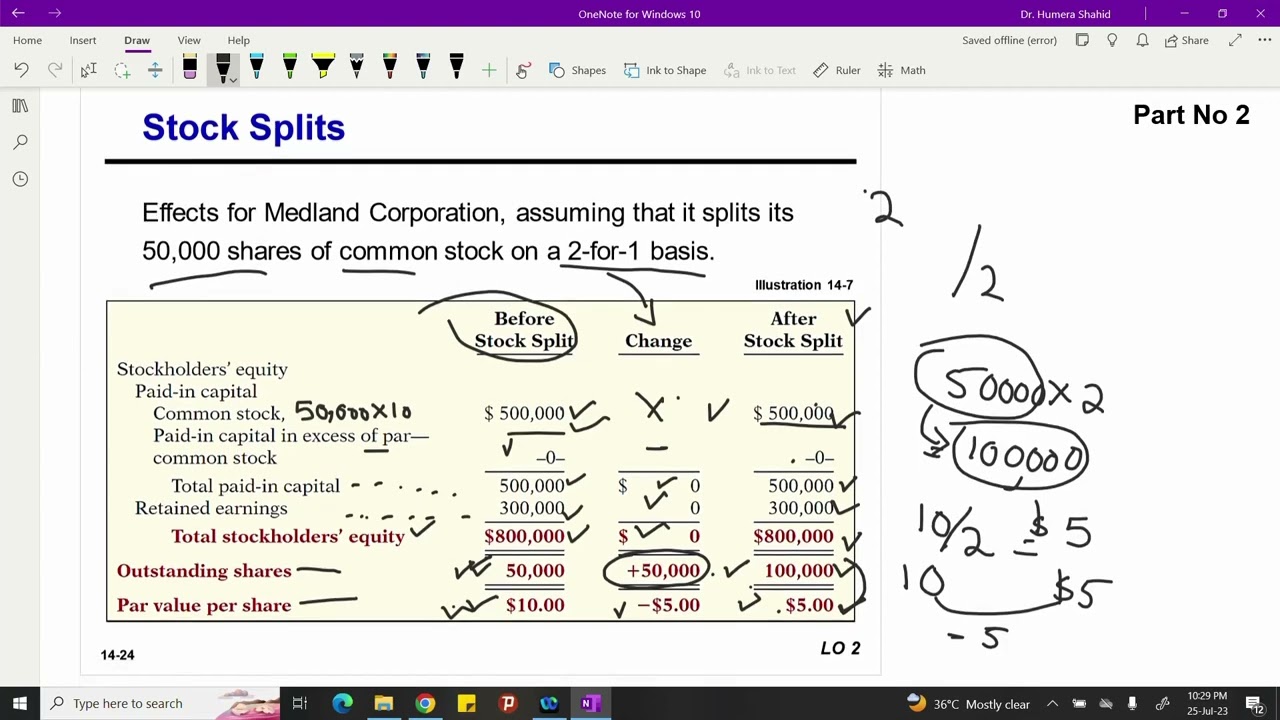 OneNote for Windows 10
Dr. Humera Shahid
Home Insert Draw View Help
Saved offline (error)
Share
Shapes
Ink to Shape
Ink to Text
Ruler
Math
Stock Splits
Part No 2
Effects for Medland Corporation, assuming that it splits its
50,000 shares of common stock on a 2-for-1 basis.
2
/2
Illustration 14-7
Before Stock Split
Change
After Stock Split
Stockholders' equity
Paid-in capital
Common stock, 50,000X10 $ 500,000 X $ 500,000
Paid-in capital in excess of par—
common stock –0– – –0–
Total paid-in capital 500,000 $ 0 500,000
Retained earnings 300,000 0 300,000
Total stockholders' equity $800,000 $ 0 $800,000
Outstanding shares 50,000 +50,000 100,000
Par value per share $10.00 –$5.00 $5.00
50000 X 2
100000
10/2 = $ 5
10 $5
- 5
14-24
LO 2
Type here to search
36°C Mostly clear
10:29 PM
25-Jul-23
12